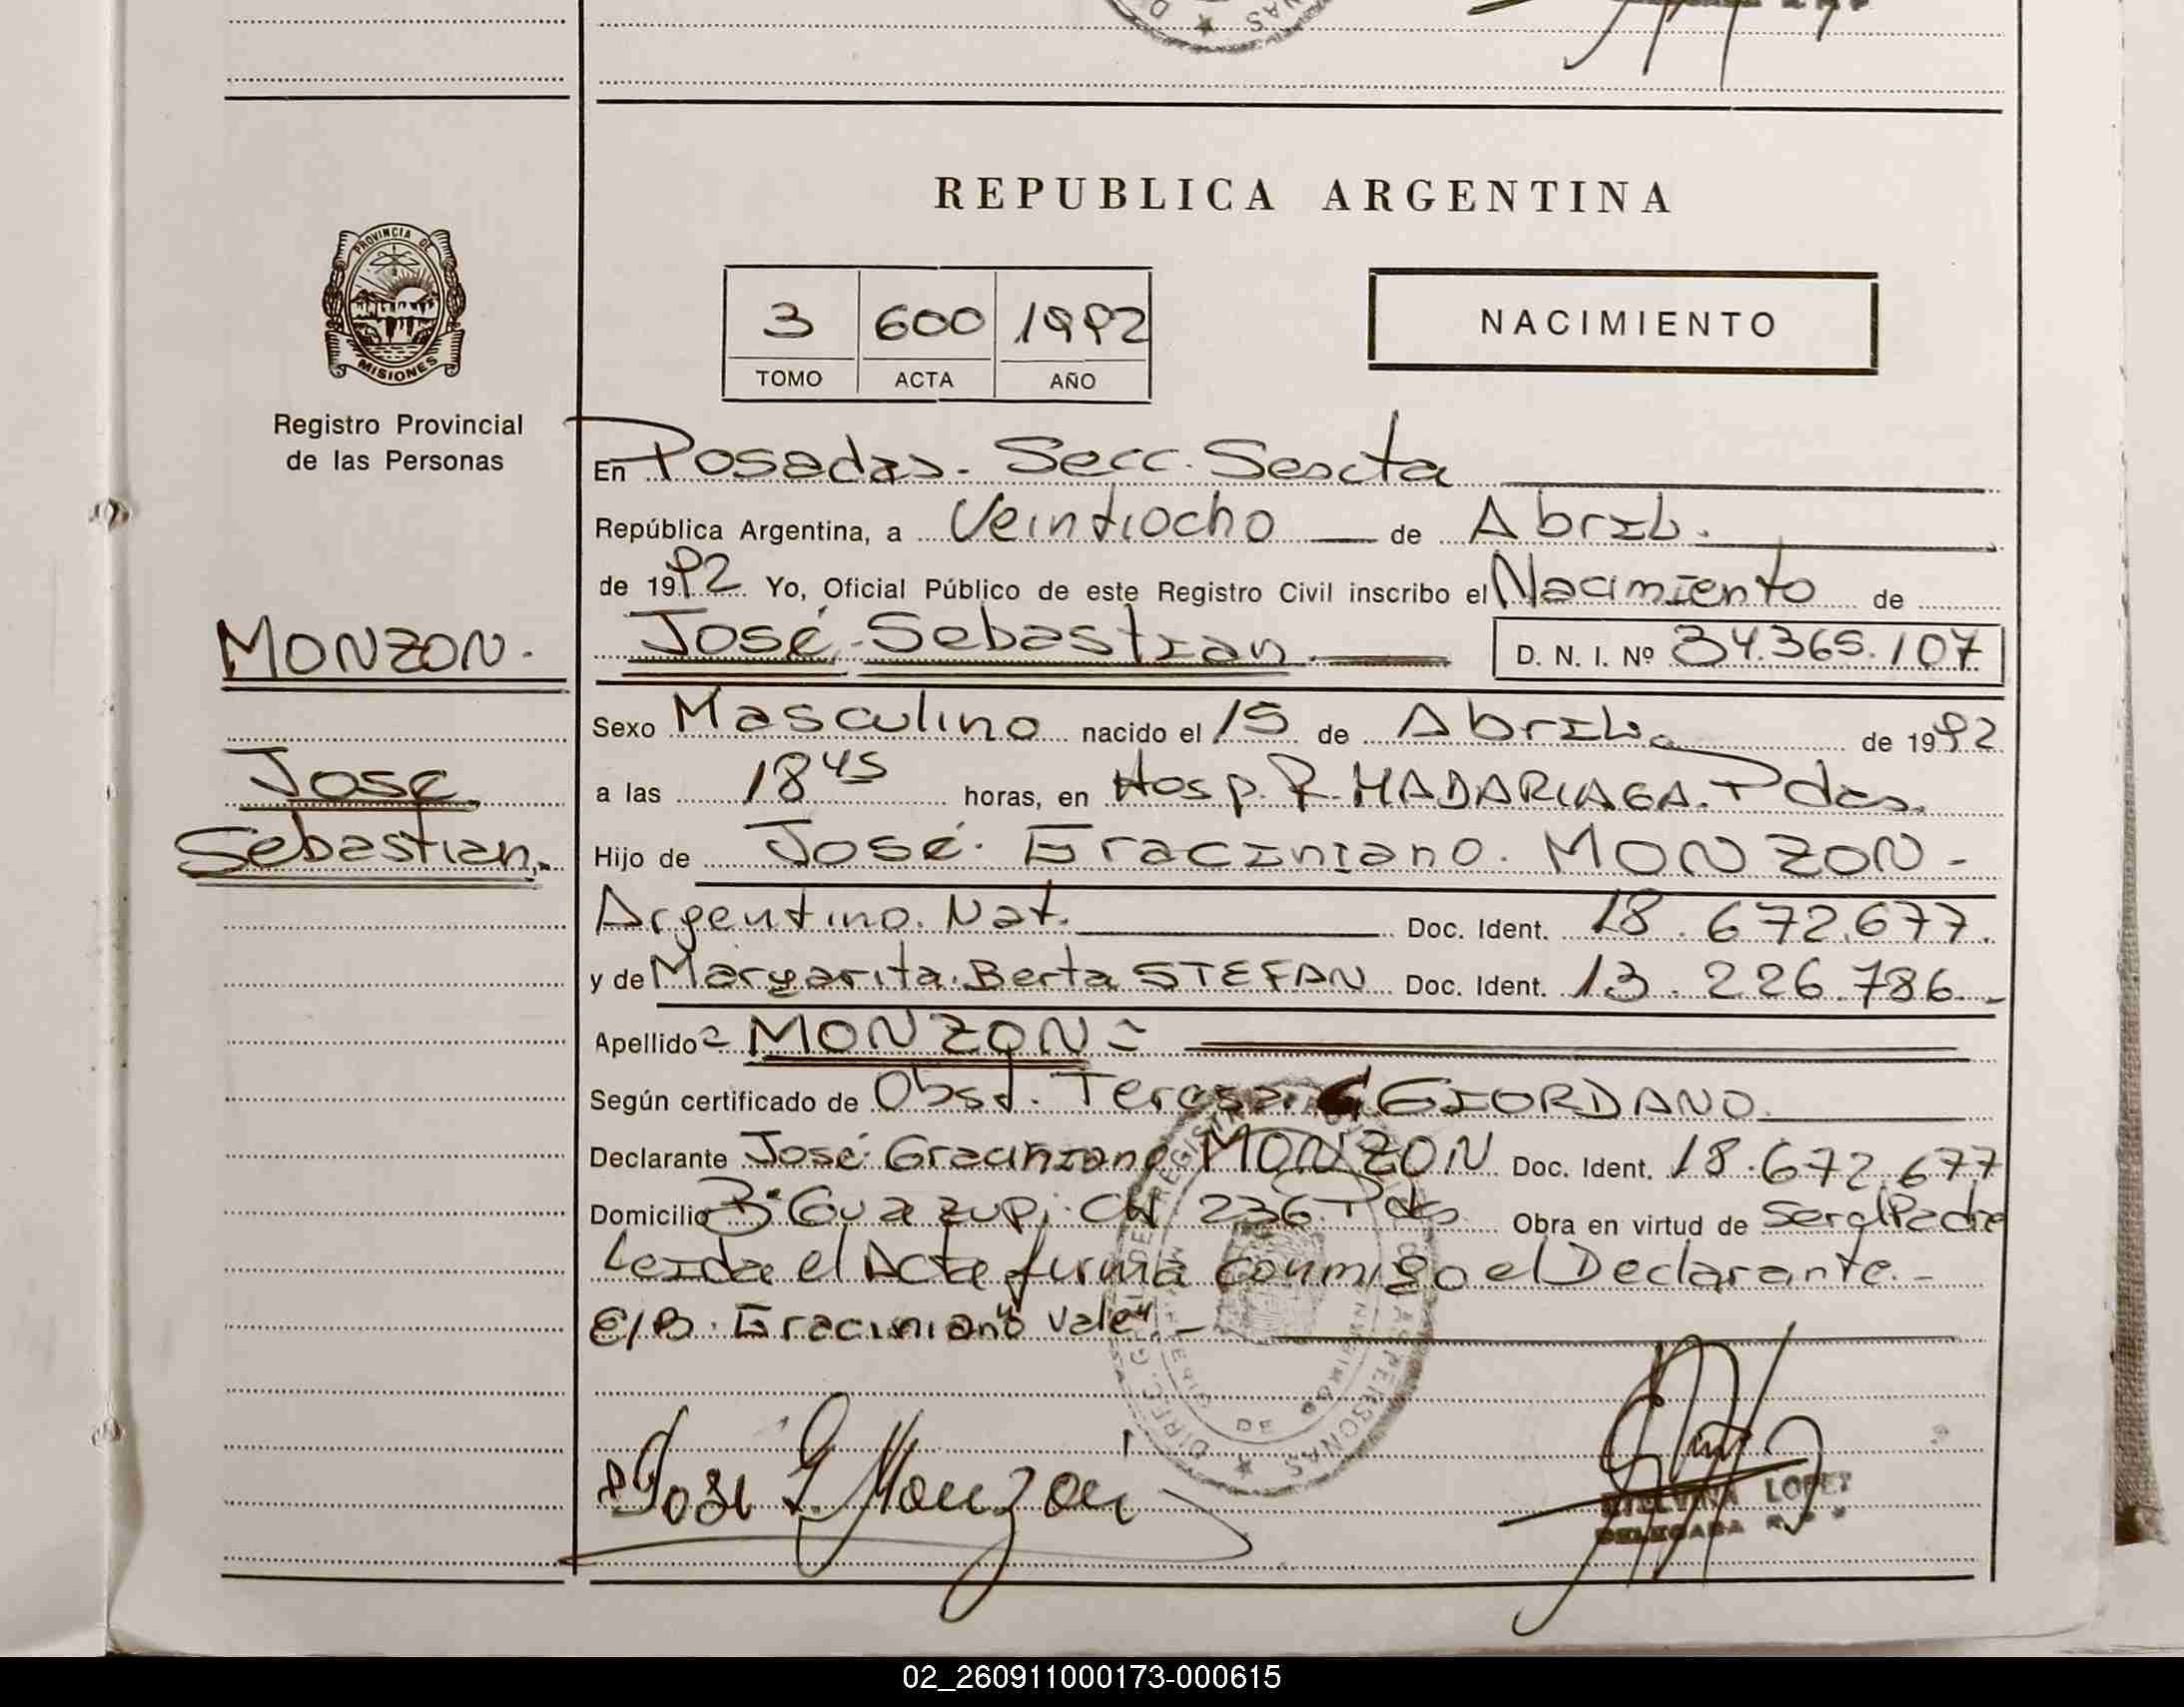 REPUBLICA ARGENTINA
PROVINCIA DE
MISIONES
Registro Provincial
de las Personas
3 600 1992
TOMO ACTA AÑO
NACIMIENTO
En Posadas. Secc. Sexta
República Argentina, a Veintiocho de Abril.
de 1992 Yo, Oficial Público de este Registro Civil inscribo el Nacimiento de
MONZON.
José Sebastian D. N. I. Nº 34.365.107
Sexo Masculino nacido el 15 de Abril. de 1992
Jose
a las 18 45 horas, en Hosp. R. MADARIAGA. Pdas.
Sebastian.
Hijo de José Graciniano. MONZON -
Argentino. Nat. Doc. Ident. 18.672.677.
y de Margarita Berta STEFAN Doc. Ident. 13.226.786.-
Apellido = MONZON =
Según certificado de Obst. Teresa GIORDANO.
Declarante José Graciniano MONZON Doc. Ident. 18.672.677
Domicilio Bº Guazupi. CH 236. Pdas Obra en virtud de Ser el Padre
Leida el Acta firma conmigo el Declarante.-
E/B. Graciniano "Vale" -
José G. Monzon
DE
LOPEZ
DELEGADA R. P.
02_260911000173-000615